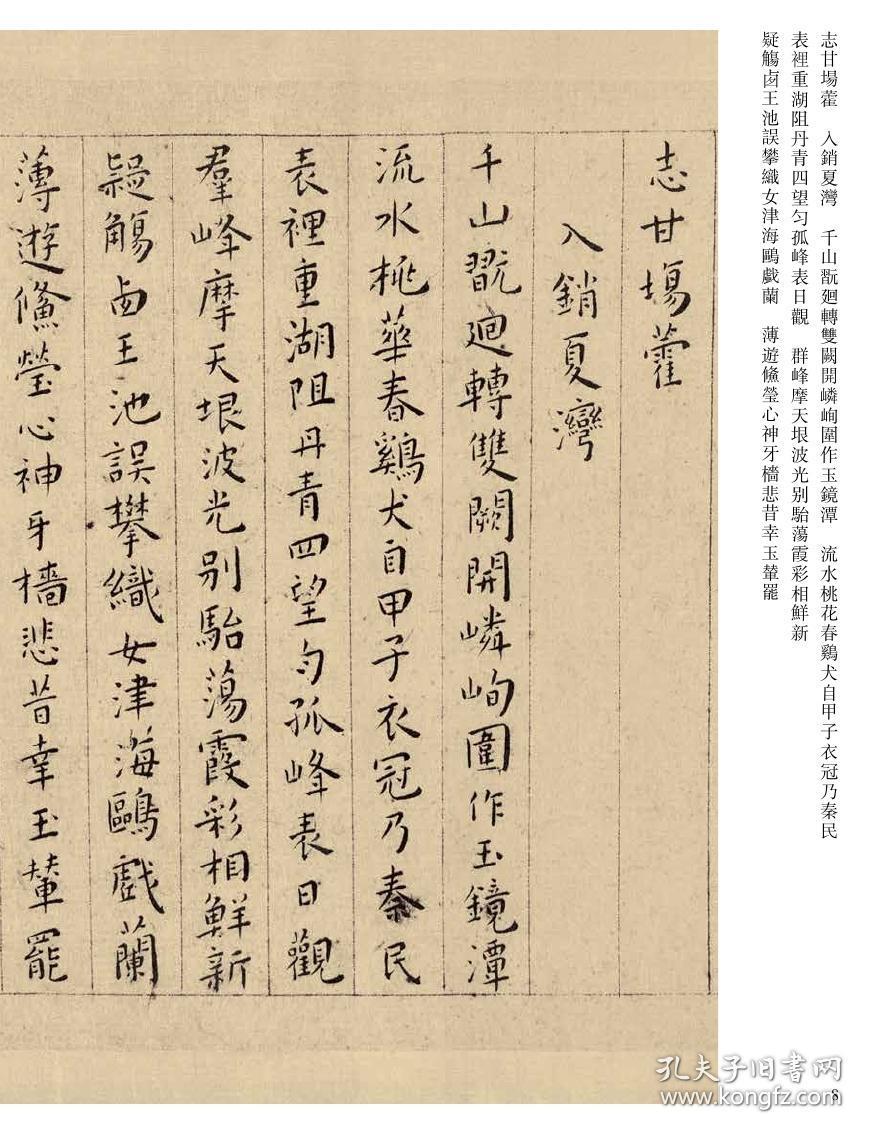 志甘場藿　入銷夏灣　千山翫廻轉雙闕開嶙峋圍作玉鏡潭　流水桃花春鷄犬自甲子衣冠乃秦民
表裡重湖阻丹青四望匀孤峰表日觀　群峰摩天垠波光別駘蕩霞彩相鮮新
疑觴卤王池誤攀織女津海鷗戲蘭　薄遊儵瑩心神牙檣悲昔幸玉輦罷
志甘場藿
入銷夏灣
千山翫廻轉雙闕開嶙峋圍作玉鏡潭
流水桃華春鷄犬自甲子衣冠乃秦民
表裡重湖阻丹青四望匀孤峰表日觀
羣峰摩天垠波光別駘蕩霞彩相鮮新
疑觴卤王池誤攀織女津海鷗戲蘭
薄遊儵瑩心神牙檣悲昔幸玉輦罷
孔夫子旧书网
www.kongfz.com
8